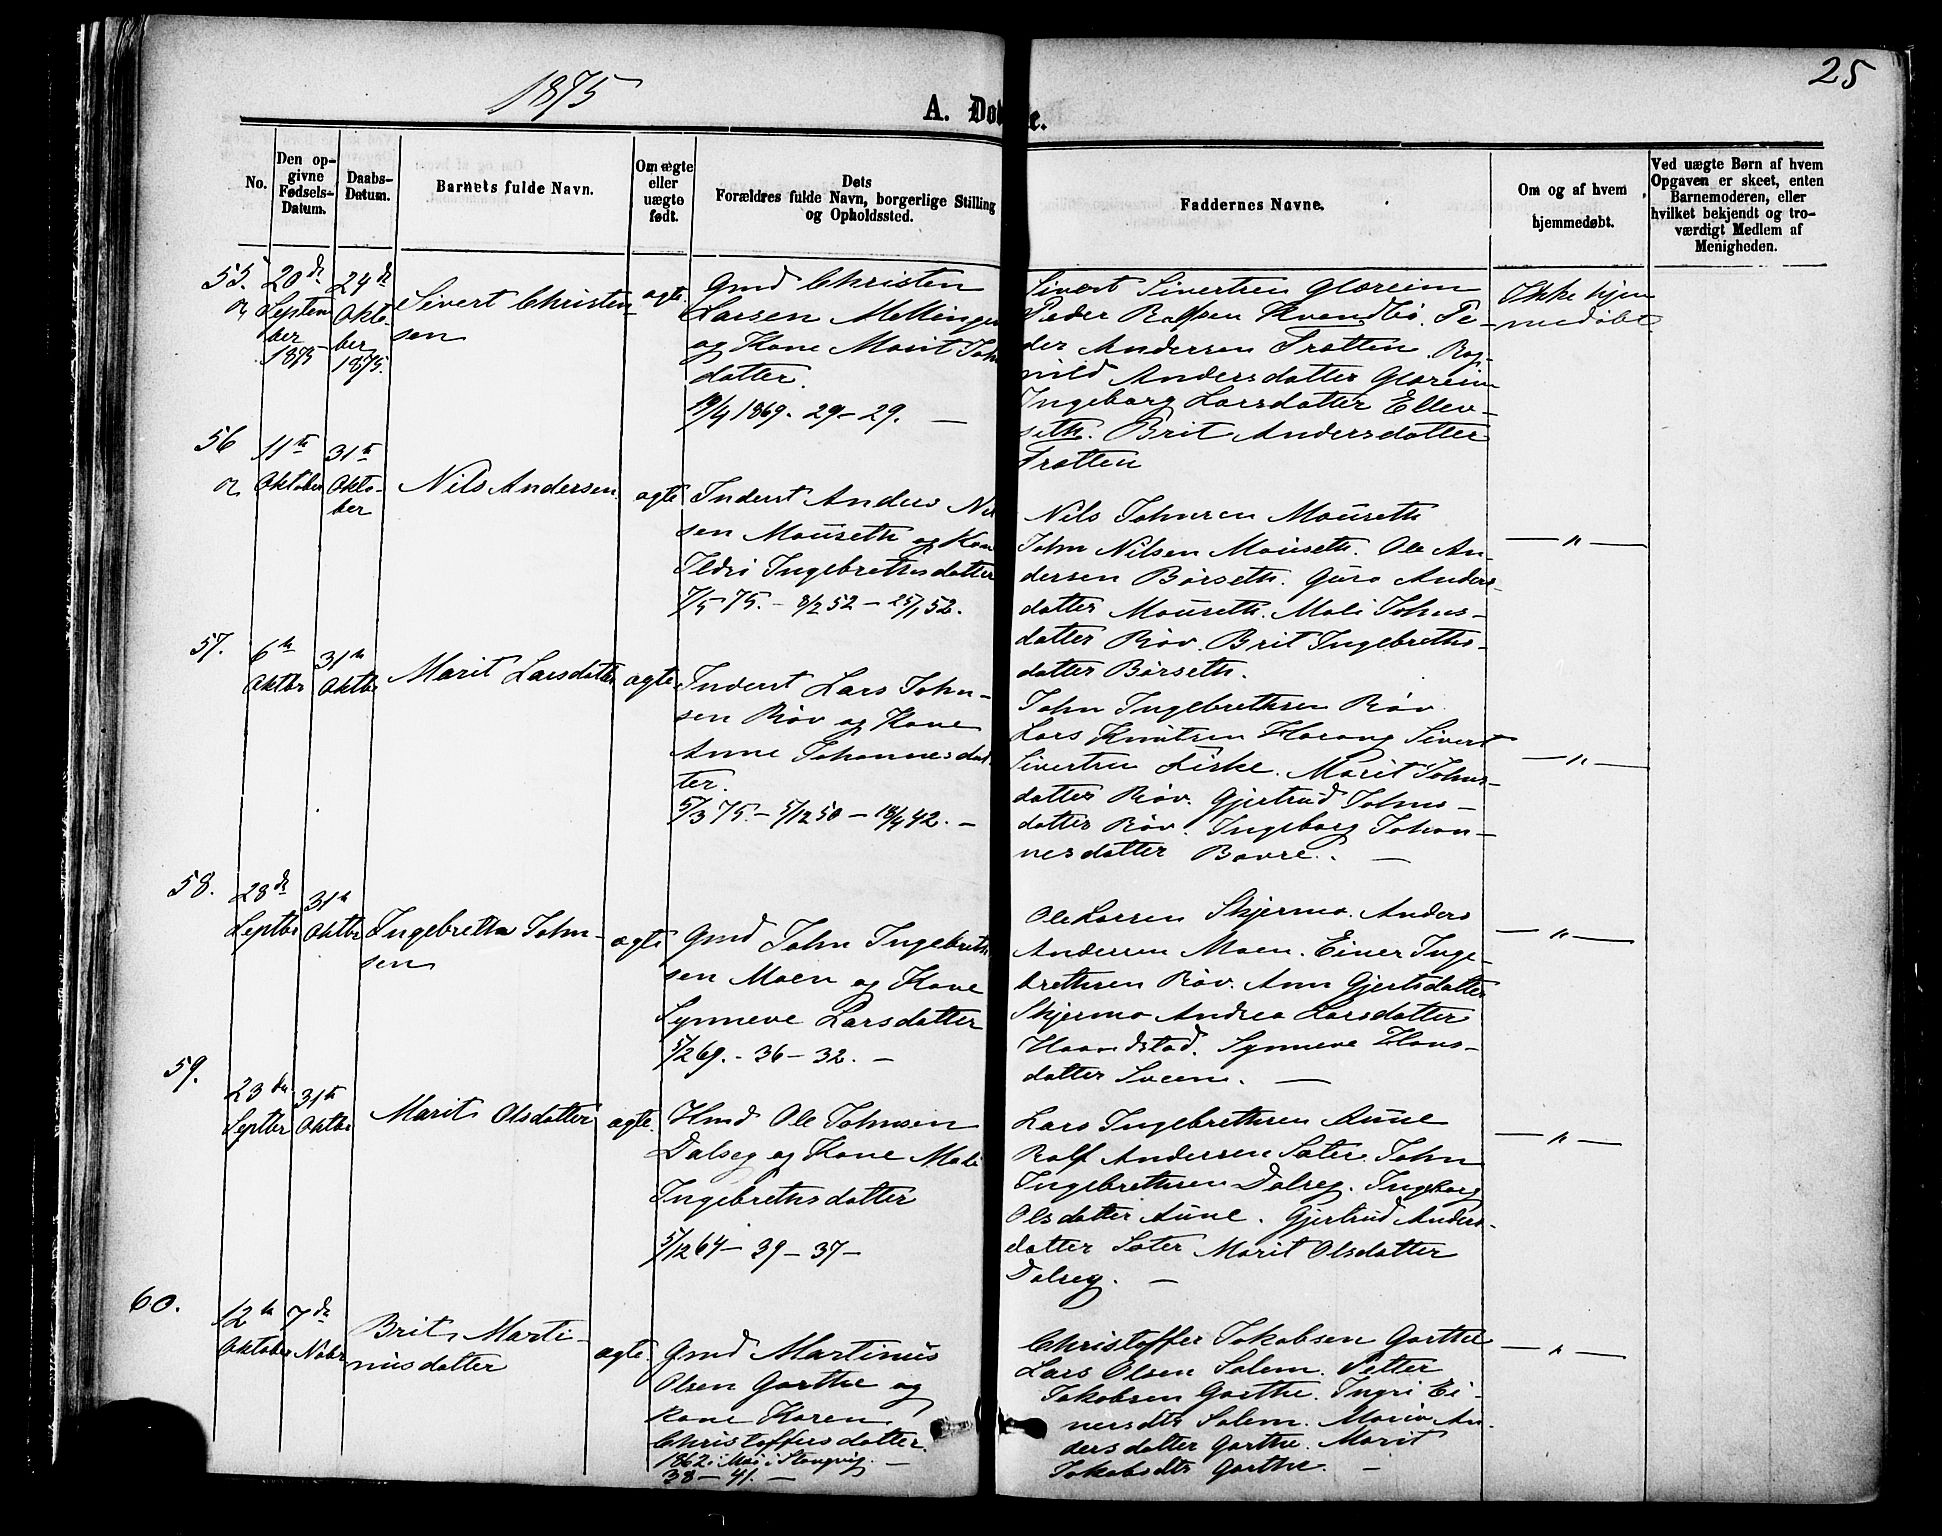 1875
25
A. Dø
e.
No.
Den op-
givne
Fødsels-
Datum.
Daabs-
Datum.
Barnets fulde Navn.
Om ægte
eller
uægte
født.
Dets
Forældres fulde Navn, borgerlige Stilling
og Opholdssted.
Faddernes Navne.
Om og af hvem
hjemmedøbt.
Ved uægte Børn af hvem
Opgaven er skeet, enten
Barnemoderen, eller
hvilket bekjendt og tro-
værdigt Medlem af
Menigheden.
55.
20de
Septem
ber
1875
24de
Okto-
ber
1875.
Sivert Christen
sen
ægte.
Gmd Christen
Larsen Mellinge
og Kone Marit Joh
datter.
19/4 1869. 29 - 29. -
Sivert Sivertsen Glæreim
Peder Rolfsen Kvendbø. Pe-
der Andersen Trøtten. Rag-
nild Andersdatter Glæreim
Ingeborg Larsdatter Ellev-
seth. Brit Andersdatter
Trøtten
Ikke hjem
medøbt
56
11te
Oktober
31te
Okto-
ber
Nils Andersen
ægte
Inderst Anders Nil
sen Mouseth og Kon
Ildri Ingebrethsdatter
7/5 75. - 8/2 52 - 25/1 52.
Nils Johnsen Mouseth
John Nilsen Mouseth. Ole An-
dersen Børseth. Guro Anders-
datter Mouseth. Mali Johns-
datter Røv. Brit Ingebreths-
datter Børseth.
— " —
57.
6te
Oktbr
31te
Oktbr
Marit Larsdatter
ægte
Inderst Lars John-
sen Røv og Kone
Anne Johannesdat
ter.
5/3 75. - 5/12 50 - 18/4 42. -
John Ingebrethsen Røv.
Lars Knutsen Harang Sivert
Sivertsen Fiske. Marit Johns-
datter Røv. Gjertrud Johns-
datter Røv. Ingeborg Johan-
nesdatter Bøvre. -
— " —
58.
28de
Septbr
31te
Oktbr
Ingebreth John-
sen
ægte
Gmd John Ingebreth
sen Moen og Kone
Synneve Larsdatter
5/12 69. - 36 - 32. -
Ole Larsen Skjermo. Anders
Andersen Moen. Einer Inge-
brethsen Røv. Ann Gjertsdatter
Skjermo Andrea Larsdatter
Haandstad. Synneve Hans-
datter Sveen. -
— " —
59.
23de
Septbr
31te
Oktbr
Marit Olsdatter
ægte.
Hmd Ole Johnsen
Dalseg og Kone Mali
Ingebrethsdatter
5/12 64 - 39 - 37 -
Lars Ingebrethsen Aune
Rolf Andersen Sæter. John
Ingebrethsen Dalseg. Ingeborg
Olsdatter Aune. Gjertrud Anders-
datter Sæter Marit Olsdatter
Dalseg. -
— " —
60.
12te
Oktober
7de
Nobr
Brit Marti-
nusdatter
ægte.
Gmd Martinus
Olsen Garthe og
kone Karen
Christoffersdatter.
1862 i Mai i Stangvig. -
38 - 41. -
Christoffer Jakobsen Garthe
Lars Olsen Solem. Petter
Jakobsen Garthe. Ingri Ei-
nersdtr Solem. Maria An-
dersdatter Garthe. Marit
Jakobsdtr Garthe. -
— " —